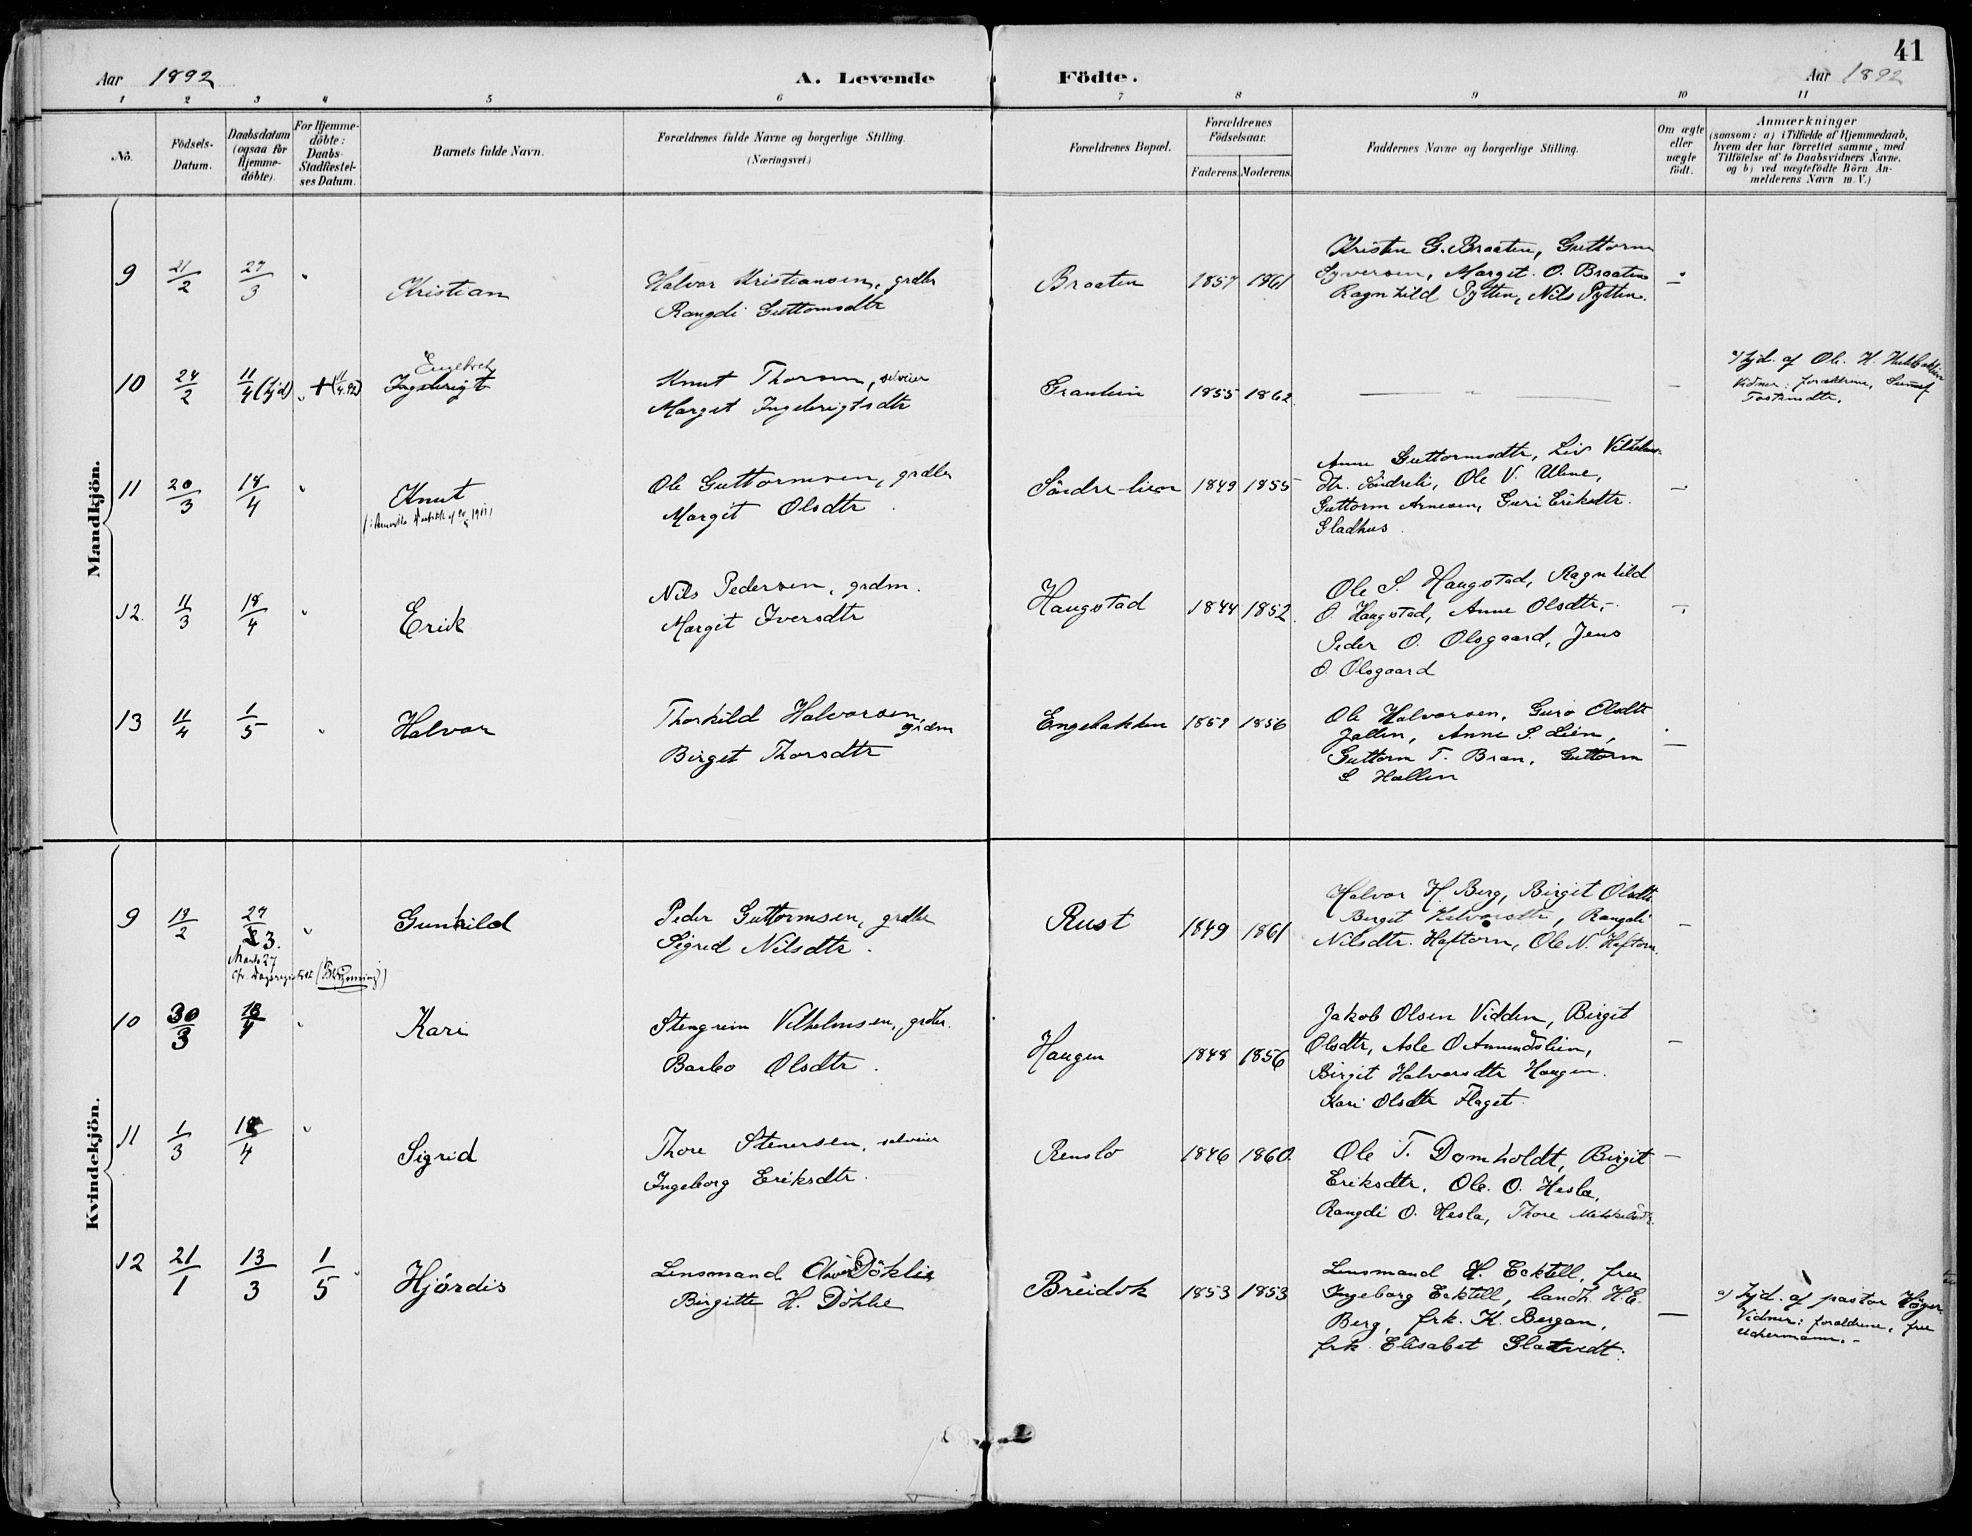 41
Aar 1892 A. Levende Födte. Aar 1892
1 2 3 4 5 6 7 8 9 10 11
No.
Födsels-
Datum.
Daabsdatum
(ogsaa for
Hjemme-
döbte).
For Hjemme-
döbte:
Daabs-
Stadfæstel-
ses Datum.
Barnets fulde Navn.
Forældrenes fulde Navne og borgerlige Stilling.
(Næringsvei.)
Forældrenes Bopæl.
Forældrenes
Födselsaar.
Faderens. Moderens.
Faddernes Navne og borgerlige Stilling.
Om ægte
eller
uægte
födt.
Anmærkninger
(saasom: a) i Tilfælde af Hjemmedaab,
hvem der har forrettet samme, med
Tilföielse af to Daabsvidners Navne,
og b) ved uægtefödte Börn An-
melderens Navn m. V.)
Mandkjön.
9 21/2 27/3 " Kristian
Halvor Kristiansen, grdbr
Rangdi Guttomsdtr
Braaten 1857 1861
Kristen G. Braaten, Guttorm
Syversen, Margit O. Braaten
Ragnhild Pytten, Nils Pytten.
—
10 24/2 11/4 (hjd) + (11/4.92)
Engebret
Ingebrigt
Knut Thorsen, selveier
Margit Ingebrigtsdtr
Granlien 1855 1862.
— " —
—
a) hjd. af Ole H.
Vidner: forældrene,
Tostensdtr.
11 20/3 18/4 " Knut
Ole Guttormsen, grdbr
Margit Olsdtr
Söndre-lien 1849 1855
Anne Guttormsdtr, Liv Vilhelms-
dtr. Söndreli, Ole V. Uhne,
Guttorm Arnesen, Guri Eriksdtr.
Gladhus.
—
12. 11/3 18/4 " Erik
Nils Pedersen, grdm.
Margit Iversdtr
Haugstad 1844 1852.
Ole S. Haugstad, Ragnhild
O. Haugstad, Anne Olsdtr,
Peder O. Olsgaard, Jens
O. Olsgaard
—
13 11/4 1/5 " Halvor
Thorkild Halvorsen,
grdm
Birget Thorsdtr
Engebakken 1859 1856
Ole Halvorsen, Guro Olsdtr
Jallin, Anne S. Lien,
Guttorm T. Bran, Guttorm
G Hallin
—
Kvindekjön.
9 19/2 27/3. " Gunhild
Marts 27
cfr. Dagsregistret
Peder Guttormsen, grdbr
Sigrid Nilsdtr.
Rust 1849 1861
Halvor H. Berg, Birgit Olsdtr
Berget Halvorsdtr, Rangdi
Nilsdtr. Haftorn, Ole N. Haftorn.
—
10 30/3 18/4 " Kari
Stengrim Vilhelmsen, grdbr.
Barbo Olsdtr.
Haugen 1848 1856
Jakob Olsen Vidden, Birgit
Olsdtr, Asle O Amundslien,
Birgit Halvorsdtr Haugen.
Kari Olsdtr Flaget.
—
11 1/3 18/4 " Sigrid
Thore Stenersen, selveier
Ingeborg Eriksdtr.
Renslo 1846 1860.
Ole T. Domholdt, Birgit
Eriksdtr, Ole. O. Hesla,
Rangdi O. Hesla, Thore
—
12 21/1 13/3 1/5 Hjördis
Lensmand Döhlie
Birgitte H. Döhlie
Breidok 1853 1853
Lensmand H. Ecktell, fru
Ingeborg Ecktell, landh. H.E.
Berg, frk. K. Bergan,
frk. Elisabet Glatvedt.
—
a) hjd. af pastor
Vidner: forældrene, fru
Uchermann.